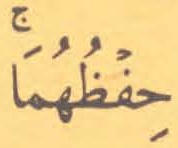 حِفْظُهُمَاۚ